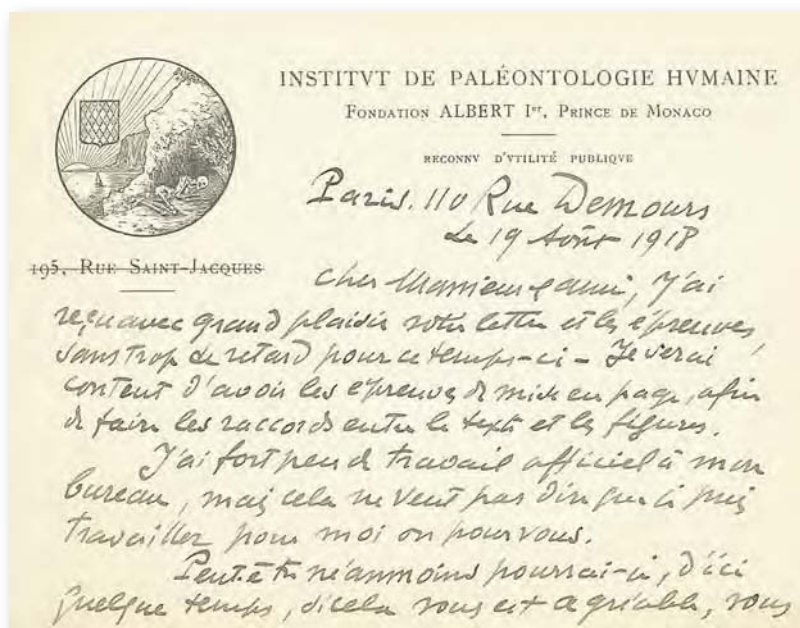 INSTITVT DE PALÉONTOLOGIE HVMAINE
FONDATION ALBERT Iᵉʳ, PRINCE DE MONACO
RECONNV D'VTILITÉ PUBLIQVE
195, RUE SAINT-JACQUES
Paris. 110 Rue Demours
Le 19 Août 1918
Cher Monsieur & ami, J'ai
reçu avec grand plaisir votre lettre et les épreuves,
sans trop de retard pour ce temps-ci – Je serai
content d'avoir les épreuves de mise en page, afin
de faire les raccords entre le texte et les figures.
J'ai fort peu de travail officiel à mon
bureau, mais cela ne veut pas dire que je puis
travailler pour moi ou pour vous.
Peut-être néanmoins pourrai-je, d'ici
quelque temps, si cela vous est agréable, vous